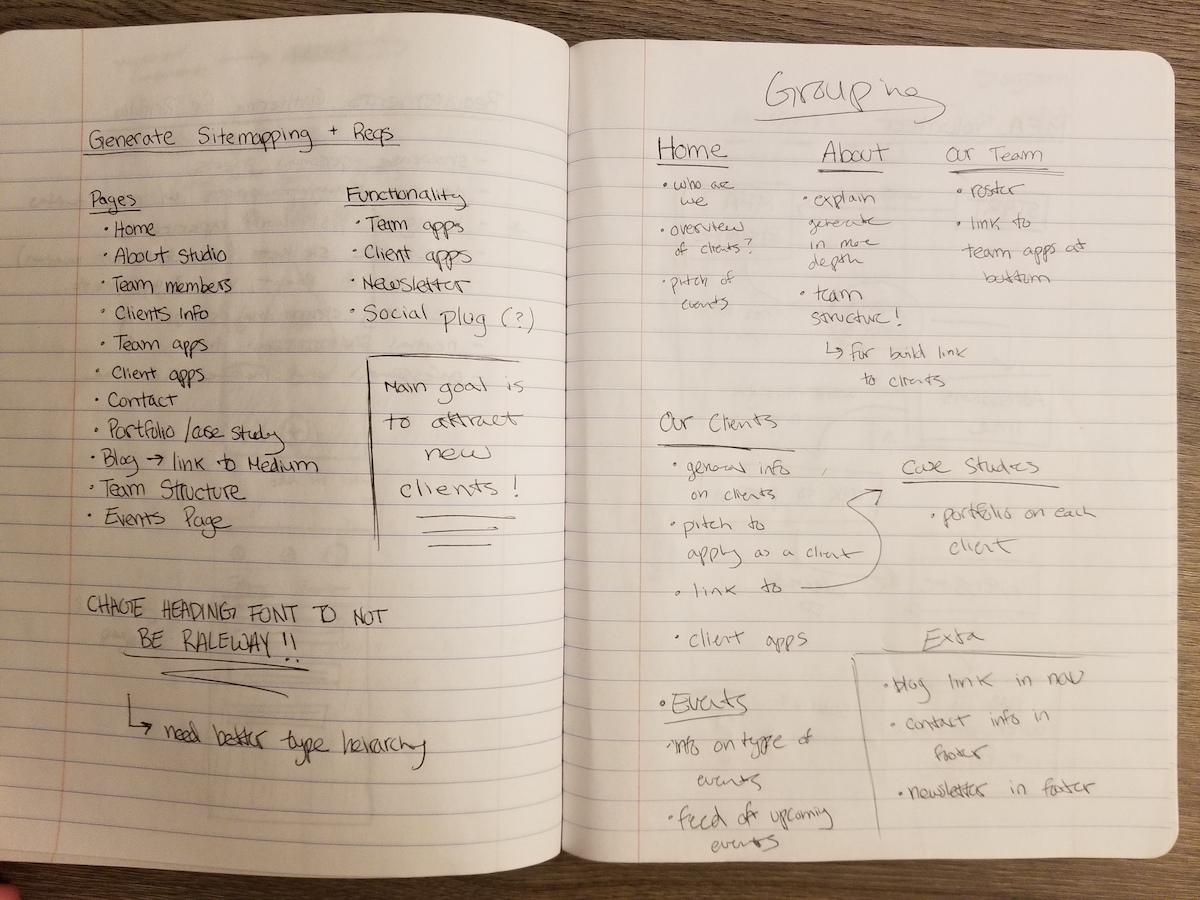 Generate Sitemapping + Reqs
Pages
• Home
• About Studio
• Team members
• Clients Info
• Team apps
• Client apps
• Contact
• Portfolio /case study
• Blog → link to Medium
• Team Structure
• Events Page
Functionality
• Team apps
• Client apps
• Newsletter
• Social plug (?)
Main goal is
to attract
new
clients!
CHAGE HEADING FONT TO NOT
BE RALEWAY!!
↳ need better type heirarchy
Grouping
Home
• who are
we
• overview
of clients?
• pitch of
events
About
• explain
generate
in more
depth
• team
structure!
↳ for build link
to clients
Our Team
• roster
• link to
team apps at
bottom
Our Clients
• general info
on clients
• pitch to
apply as a client
• link to
• client apps
Case Studies
• portfolio on each
client
• Events
• info on type of
events
• feed of upcoming
events
Extra
• blog link in nav
• contact info in
footer
• newsletter in footer